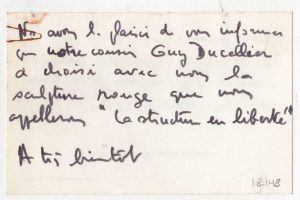 Nous avons le plaisir de vous informer
que notre cousin Guy Ducellier
a choisi avec nous la
sculpture rouge que nous
appellerons "La structure en liberté"
A très bientôt
18.148